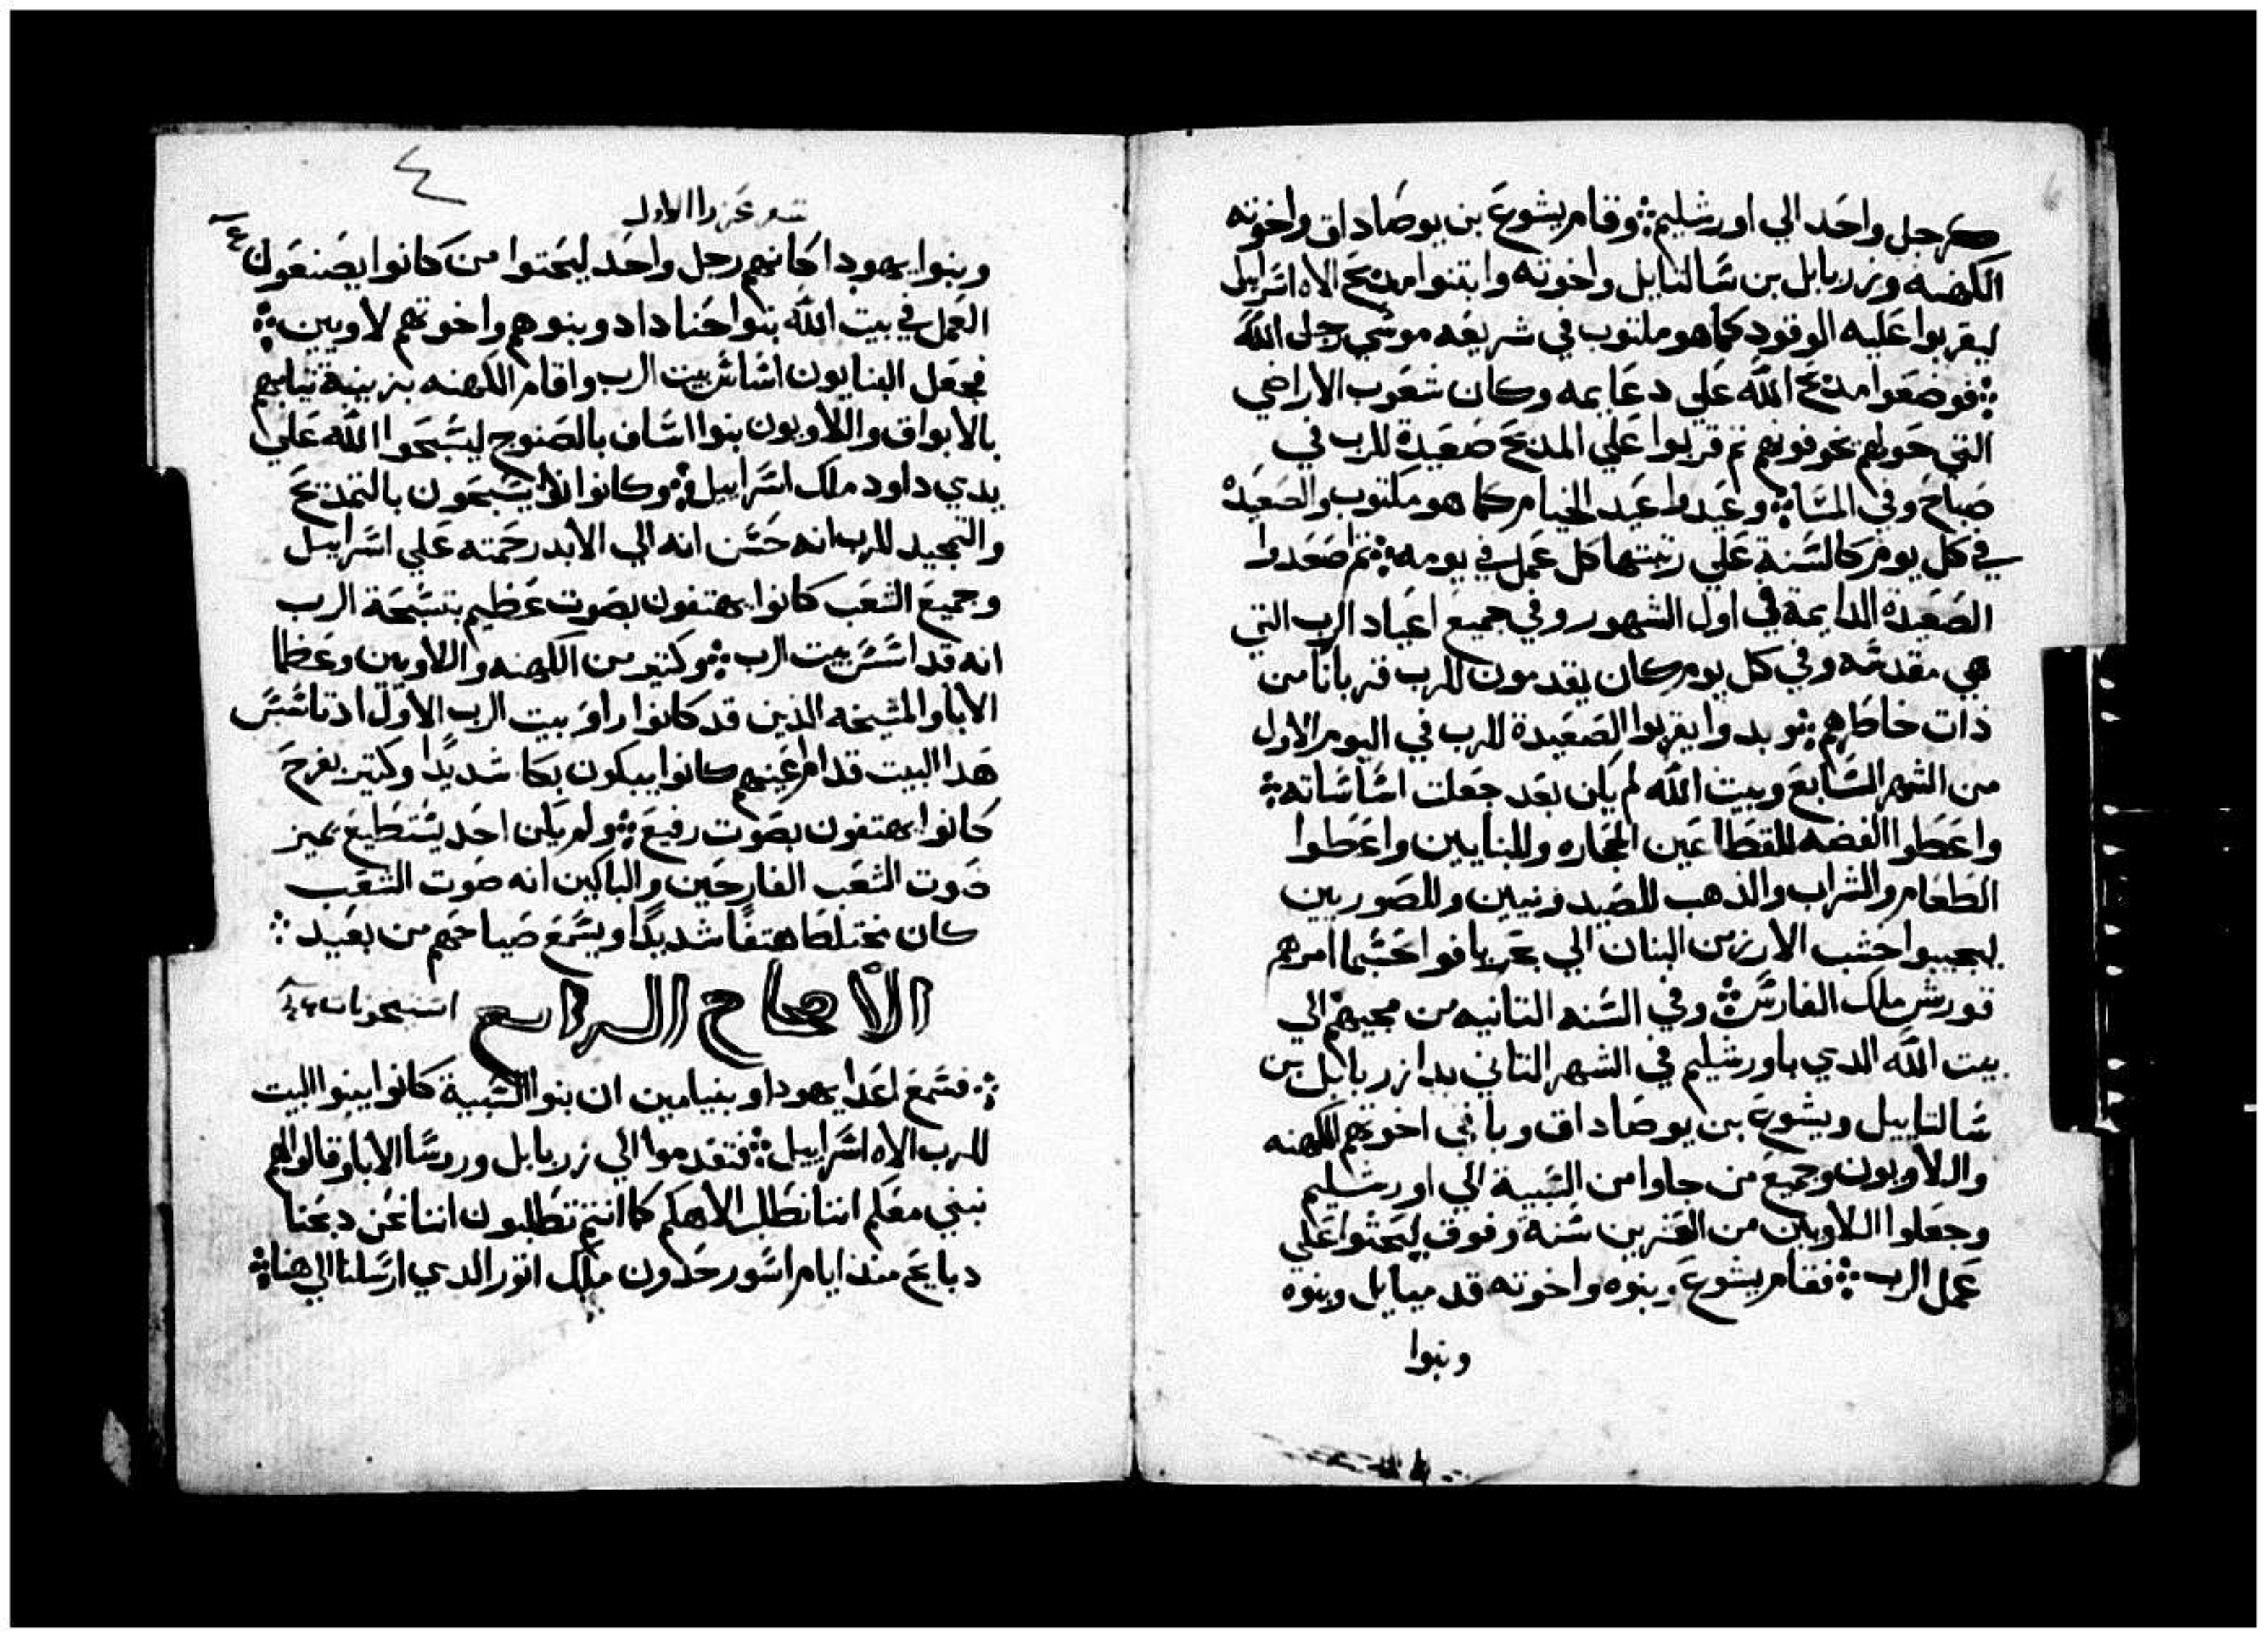 كرجل واحد الي اورشليم ܀ وقام يشوع بن يوصاداق واخوته
الكهنه وزربابل بن شالتايل واخوته وابتنوا مدبح الاه اسراييل
ليقربوا عليه الوقود كما هو مكتوب في شريعه موسي رجل الله
܀ فوضعوا مدبح الله علي دعايمه وكان شعوب الاراضي
التي حولهم يخوفونهم تم قربوا علي المدبح صعيدة للرب في
صباح وفي المسا ܀ وعيدوا عيد الخيام كما هو مكتوب والصعيدة
في كل يوم كالسنة علي رتبتها كل عمل في يومه ܀ تم اصعدوا
الصعيدة الدايمة في اول الشهور وفي جميع اعياد الرب التي
هي مقدسه وفي كل يوم كان يقدمون للرب قربانا من
ذات خاطرهم ܀ وبدوا يقربوا الصعيدة للرب في اليوم الاول
من الشهر السابع وبيت الله لم يكن بعد جعلت اساساته ܀
واعطوا الفضه للقطاعين الحجاره وللبنايين واعطوا
الطعام والشراب والذهب للصيدونيين وللصوريين
ليجيبوا خشب الارز من البنان الي بحر يافو احسبما امرهم
قورش ملك الفارس ܀ وفي السنه التانيه من مجيهم الي
بيت الله الدي باورشليم في الشهر التاني بدا زربابل بن
شالتاييل ويشوع بن يوصاداق وباقي اخوتهم الكهنه
واللاويون وجميع من جاوا من السبية الي اورشليم
وجعلوا اللاويين من العشرين سنة وفوق ليحثوا علي
عمل الرب ܀ فقام يشوع وبنوه واخوته قدميايل وبنوه
وبنوا
٤
سفر عزرا الاول
وبنوا يهودا كانهم رجل واحد ليحتوا من كانوا يصنعون
العمل في بيت الله بنوا حناداد وبنوهم واخوتهم لاويين ܀
فجعل البنايون اساس بيت الرب واقام الكهنه بزينة تيابهم
بالابواق واللاويون بنوا اساف بالصنوج ليسبحوا الله علي
يدي داود ملك اسراييل ܀ وكانوا يسبحون بالتمديح
والتمجيد للرب انه حسن انه الي الابد رحمته علي اسراييل
وجميع الشعب كانوا يهتفون بصوت عظيم بتسبحة الرب
انه قد اسس بيت الرب ܀ وكتير من الكهنه واللاويين وعظما
الابا والمشيخه الذين قد كانوا راوا بيت الرب الاول اد تاسس
هدا البيت قدام اعينهم كانوا يبكون بكا شديدا وكتير بفرح
كانوا يهتفون بصوت رفيع ܀ ولم يكن احد يستطيع يميز
صوت الشعب الفارحين والباكين انه صوت الشعب
كان مختلطا هتفا شديدا ويسمع صياحهم من بعيد ܀
الاصحاح الرابع
܀ فسمع اعدا يهودا وبنيامين ان بنوا السبية كانوا يبنوا البيت
للرب الاه اسراييل ܀ فتقدموا الي زربابل وروسا الابا وقالوا لهم
نبني معكم اننا نطلب الاهكم كما انتم تطلبون اننا نحن دبحنا
دبايح مند ايام اسور حدون ملك اتور الدي ارسلنا الي هنا ܀